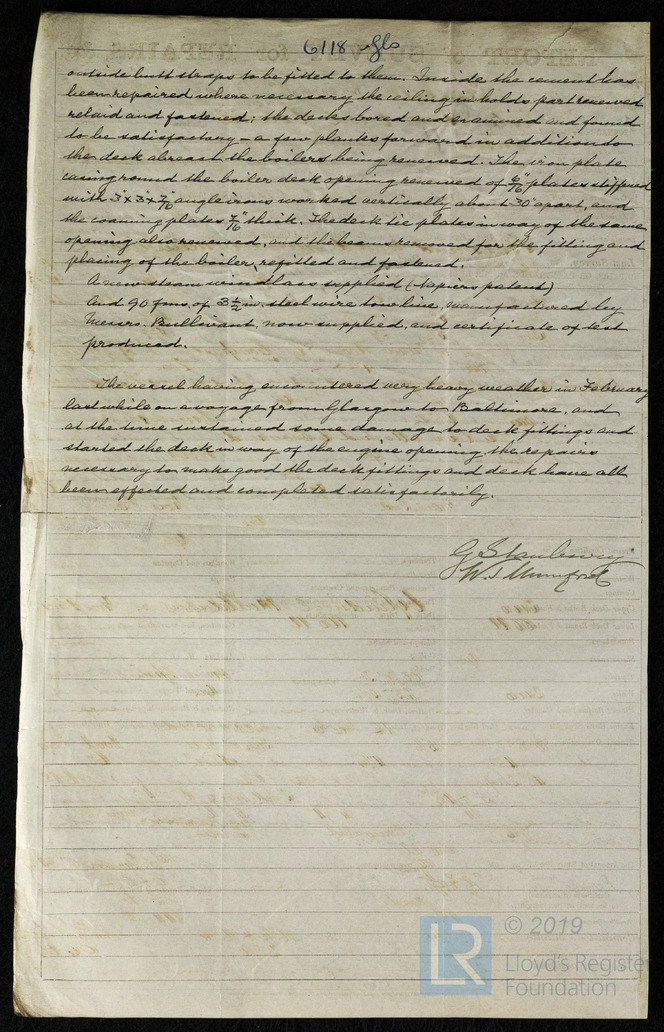 6118 Gls
outside butt straps to be fitted to them. Inside the cement has
been repaired where necessary the ceiling in holds part renewed
relaid and fastened; the decks bored and examined and found
to be satisfactory - a few planks forward in addition to
the deck abreast the boilers being renewed. The iron plate
casing round the boiler deck opening renewed of 6/16" plates stiffened
with 3" x 3" x 7/16 angle irons worked vertically about 30" apart, and
the coaming plates 7/16" thick. The deck tie plates in way of the same
opening also renewed, and the beams removed for the fitting and
placing of the boiler, refitted and fastened.
A new steam windlass supplied (Napiers patent)
And 90 fms. of 3 1/2 in. steel wire tow line, manufactured by
Messrs. Bullivant, now supplied, and certificate of test
produced.
The vessel having encountered very heavy weather in February
last while on a voyage from Glasgow to Baltimore, and
at the time sustained some damage to deck fittings and
started the deck in way of the engine opening, the repairs
necessary to make good the deck fittings and deck have all
been effected and completed satisfactorily.
G Stanbury
W. J Mumford
© 2019
LR
Lloyd's Register
Foundation